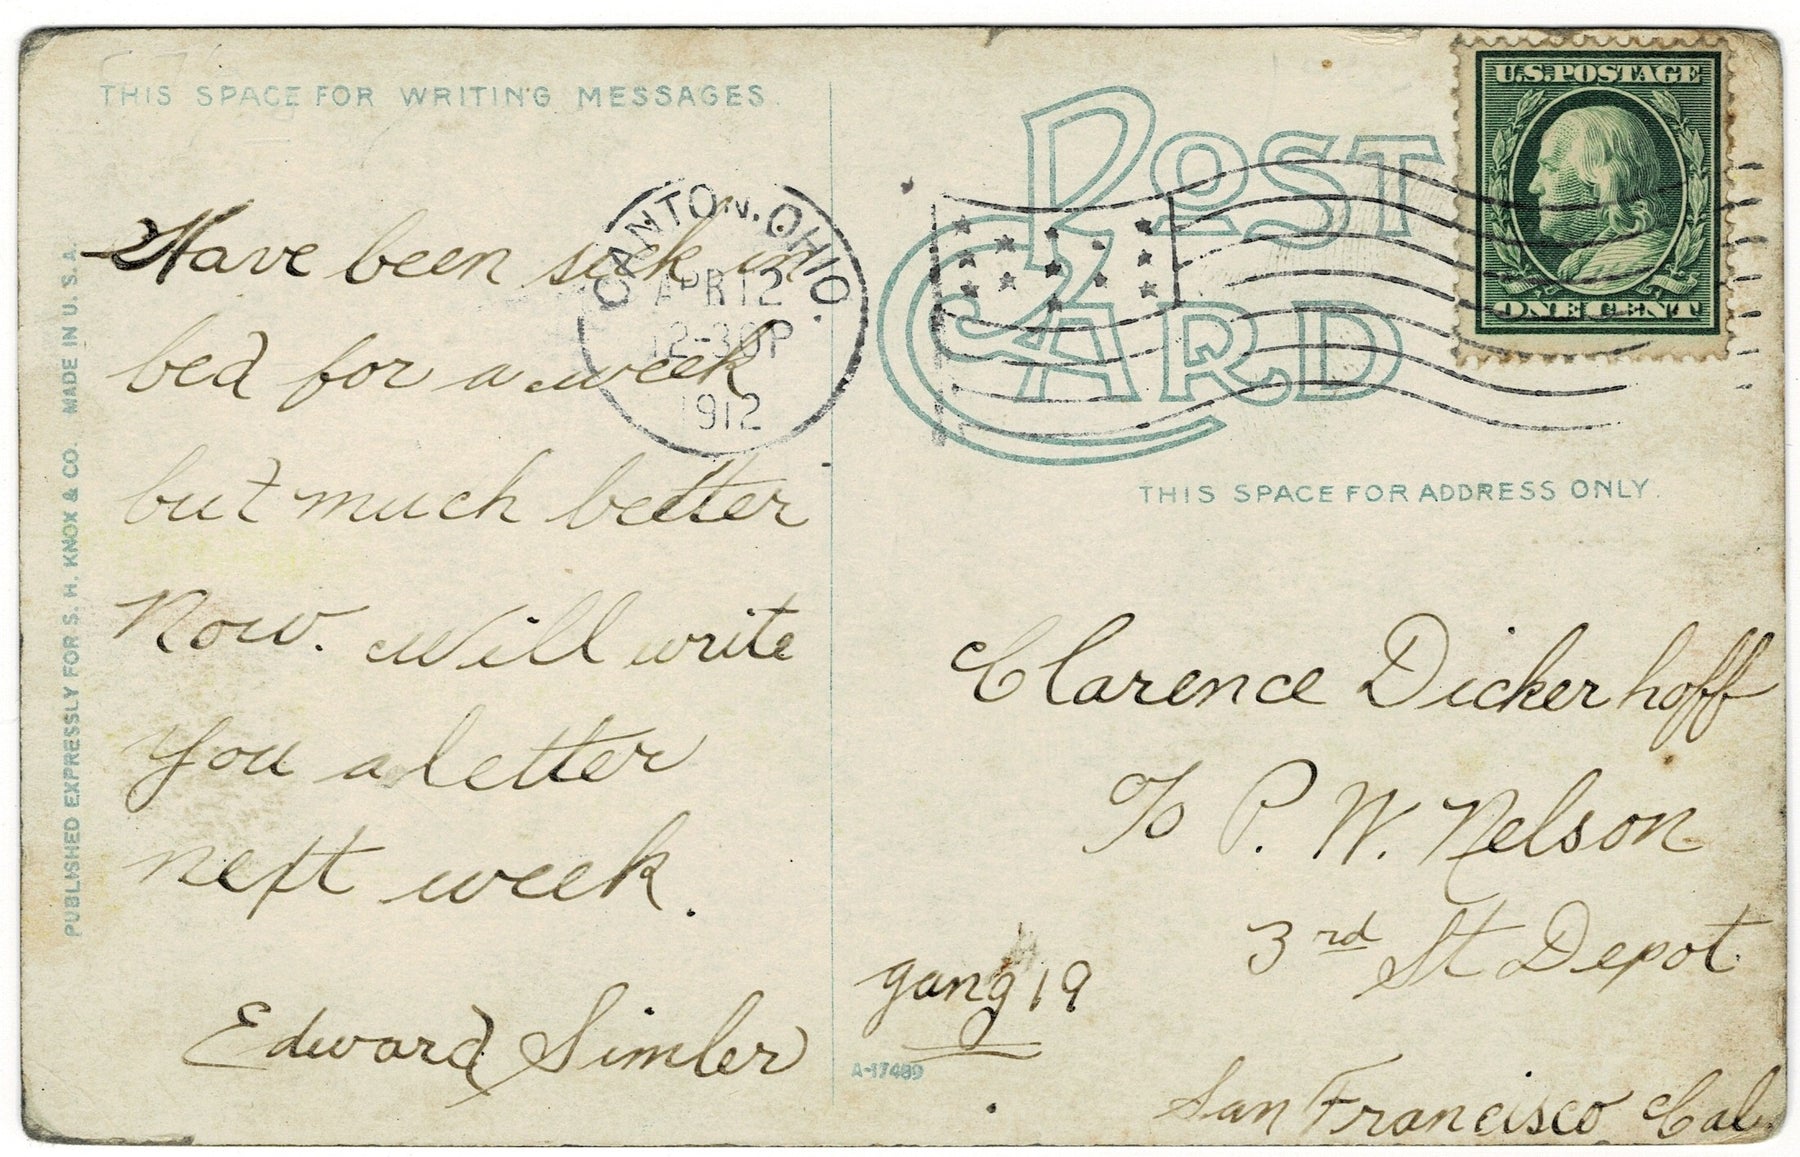 THIS SPACE FOR WRITING MESSAGES.
Have been sick in
bed for a week
but much better
Now. Will write
you a letter
next week.
Edward Simler
PUBLISHED EXPRESSLY FOR S. H. KNOX & CO. MADE IN U. S. A.
CANTON, OHIO.
APR 12
12-30P
1912
POST CARD
U.S. POSTAGE
ONE CENT
THIS SPACE FOR ADDRESS ONLY.
Clarence Dickerhoff
℅ P. W. Nelson
3rd St Depot.
gang 19
San Francisco Cal.
A-17489